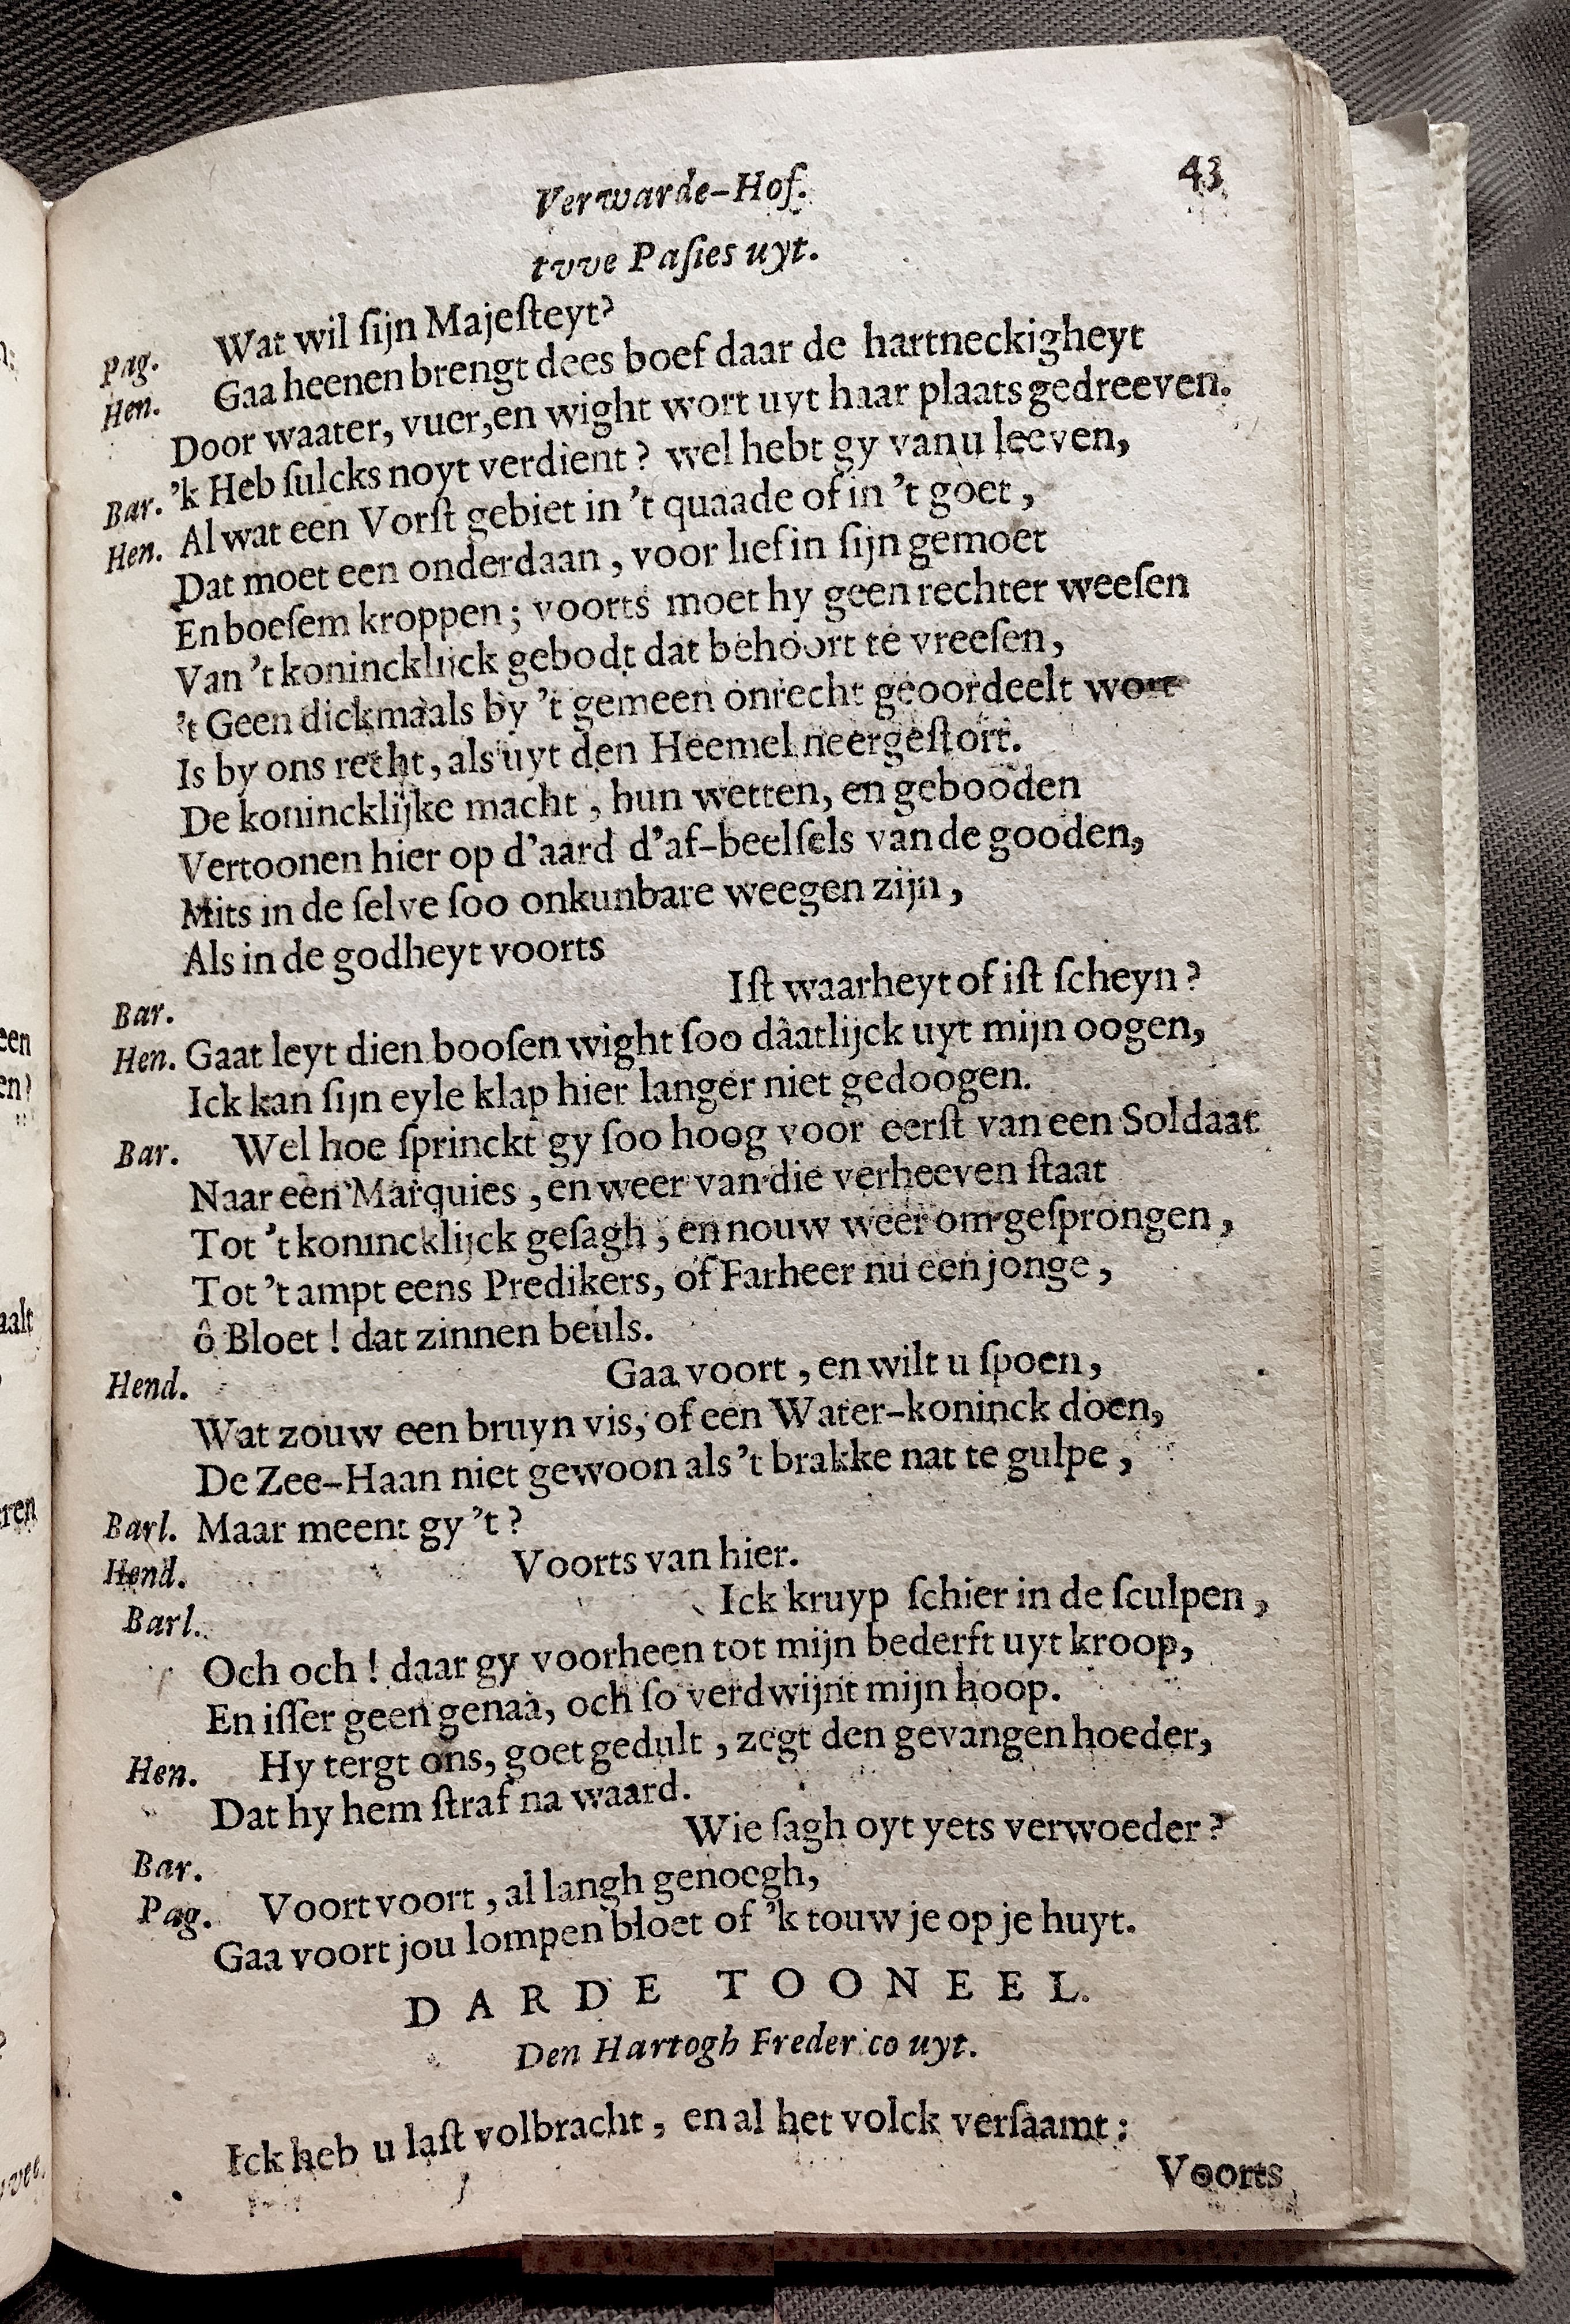 Verwarde-Hof. 43
tvve Pasies uyt.
Pag. Wat wil ſijn Majeſteyt?
Hen. Gaa heenen brengt dees boef daar de hartneckigheyt
Door waater, vuer, en wight wort uyt haar plaats gedreeven.
Bar. 'k Heb ſulcks noyt verdient? wel hebt gy van u leeven,
Hen. Al wat een Vorſt gebiet in 't quaade of in 't goet,
Dat moet een onderdaan, voor lief in ſijn gemoet
En boeſem kroppen; voorts moet hy geen rechter weeſen
Van 't koninckliick gebodt dat behoort te vreeſen,
't Geen dickmaals by 't gemeen onrecht geoordeelt wort
Is by ons recht, als uyt den Heemel neergeſtort.
De konincklijke macht, hun wetten, en gebooden
Vertoonen hier op d'aard d'af-beelſels van de gooden,
Mits in de ſelve ſoo onkunbare weegen zijn,
Als in de godheyt voorts
Bar. Iſt waarheyt of iſt ſcheyn?
Hen. Gaat leyt dien booſen wight ſoo dâatlijck uyt mijn oogen,
Ick kan ſijn eyle klap hier langer niet gedoogen.
Bar. Wel hoe ſprinckt gy ſoo hoog voor eerſt van een Soldaat
Naar een Marquies, en weer van die verheeven ſtaat
Tot 't konincklijck geſagh, en nouw weer om geſprongen,
Tot 't ampt eens Predikers, of Farheer nu een jonge,
ô Bloet! dat zinnen beuls.
Hend. Gaa voort, en wilt u ſpoen,
Wat zouw een bruyn vis, of een Water-koninck doen,
De Zee-Haan niet gewoon als 't brakke nat te gulpe,
Barl. Maar meent gy 't?
Hend. Voorts van hier.
Barl. Ick kruyp ſchier in de ſculpen,
Och och! daar gy voorheen tot mijn bederft uyt kroop,
En iſſer geen genaa, och ſo verdwijnt mijn hoop.
Hen. Hy tergt ons, goet gedult, zegt den gevangenhoeder,
Dat hy hem ſtraf na waard.
Bar. Wie ſagh oyt yets verwoeder?
Pag. Voort voort, al langh genoegh,
Gaa voort jou lompen bloet of 'k touw je op je huyt.
DARDE TOONEEL.
Den Hartogh Frederico uyt.
Ick heb u laſt volbracht, en al het volck verſaamt:
Voorts